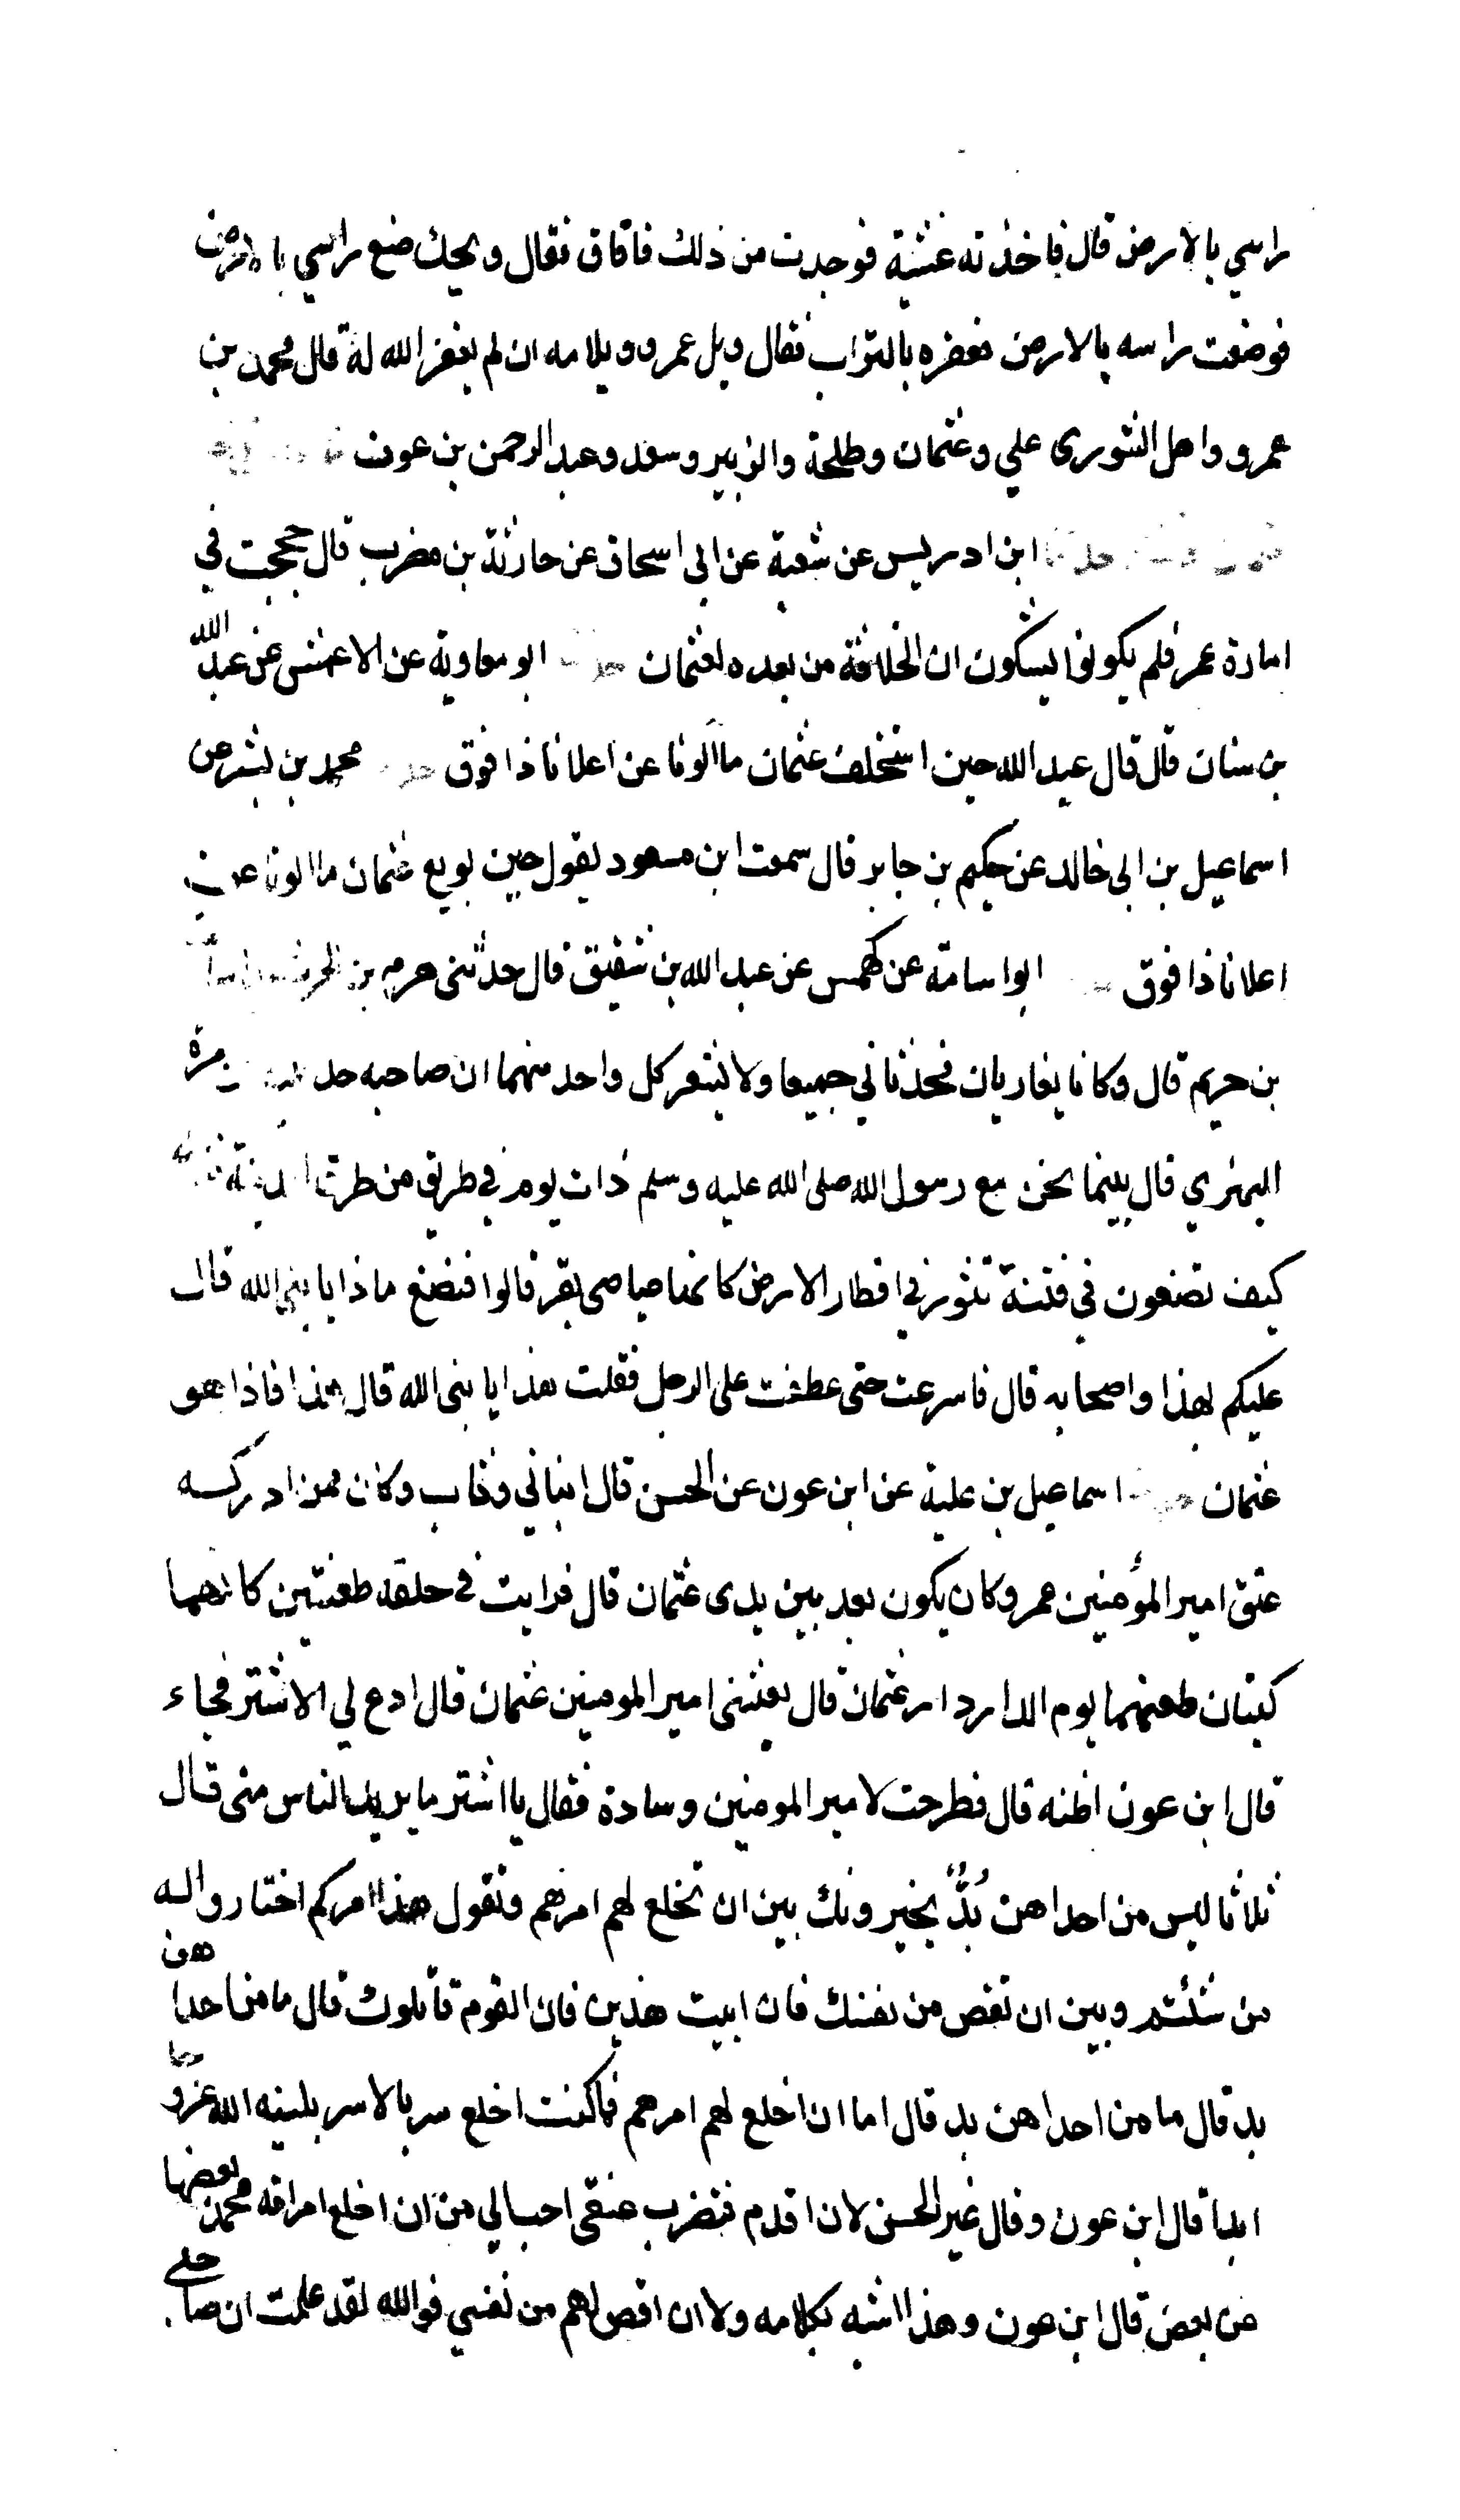 راسي بالارض قال فاخذته غشية فوجدت من ذلك فافاق فقال ويحك ضع راسي بالارض
فوضعت راسه بالارض فعفره بالتراب فقال ويل عمر وويل امه ان لم يغفر الله له قال محمد بن
عمرو واهل الشورى علي وعثمان وطلحة والزبير وسعد وعبد الرحمن بن عوف
ابن ادريس عن شعبة عن ابي اسحاق عن حارثة بن مضرب قال حججت في
امارة عمر فلم يكونوا يشكون ان الخلافة من بعده لعثمان ابو معاوية عن الاعمش عن عبد الله
بن سنان قال قال عبد الله حين استخلف عثمان ما الونا عن اعلانا ذا فوق محمد بن بشر عن
اسماعيل بن ابي خالد عن حكيم بن جابر قال سمعت ابن مسعود يقول حين بويع عثمان ما الونا عن
اعلانا ذا فوق ابو اسامة عن كهمس عن عبد الله بن شقيق قال حدثني هرم بن
بن خريم قال وكانا يغازيان فحدثاني جميعا ولا يشعر كل واحد منهما ان صاحبه مرة
البهزي قال بينما نحن مع رسول الله صلى الله عليه وسلم ذات يوم في طريق من طرق المدينة فقال
كيف تصنعون في فتنة تثور في اقطار الارض كانها صياصي بقر قالوا فنصنع ماذا يا نبي الله قال
عليكم بهذا واصحابه قال فاسرعت حتى عطفت على الرجل فقلت هذا يا نبي الله قال هذا فاذا هو
عثمان اسماعيل بن علية عن ابن عون عن الحسن قال انباني وثاب وكان ممن ادركه
عتق امير المؤمنين عمر وكان يكون بعد بين يدى عثمان قال فرايت في حلقه طعنتين كانهما
كيتان طعنهما يوم الدار دار عثمان قال بعثني امير المومنين عثمان قال ادع لي الاشتر فجاء
قال ابن عون اظنه قال فطرحت لامير المومنين وسادة فقال يا اشتر ما يريد الناس مني قال
ثلاثا ليس من احداهن بُدٌّ يخيرونك بين ان تخلع لهم امرهم وتقول هذا امركم اختاروا له
من شئتم وبين ان تقص من نفسك فان ابيت هذين فان القوم قاتلوك قال ما من احداهن
بد قال ما من احداهن بد قال اما ان اخلع لهم امرهم فما كنت اخلع سربالا سربلنيه الله عز وجل
ابدا قال ابن عون وقال غير الحسن لان اقدم فتضرب عنقي احب الي من ان اخلع امر امة محمد بعضها
عن بعض قال ابن عون وهذا اشبه بكلامه ولا ان اقص لهم من نفسي فوالله لقد علمت ان صاحبي